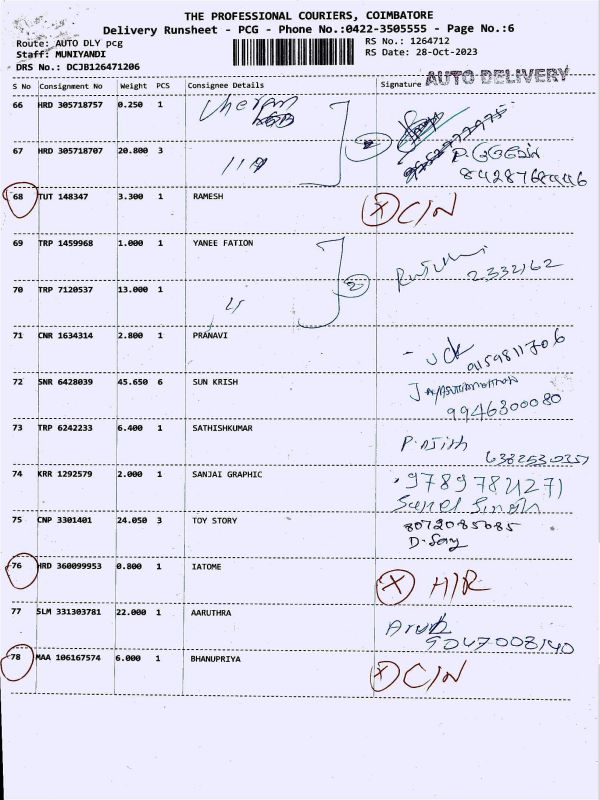 THE PROFESSIONAL COURIERS, COIMBATORE
Delivery Runsheet - PCG - Phone No.:0422-3505555 - Page No.:6
Route: AUTO DLY pcg RS No.: 1264712
Staff: MUNIYANDI RS Date: 28-Oct-2023
DRS No.: DCJB126471206
AUTO DELIVERY
S No Consignment No Weight PCS Consignee Details Signature
66 HRD 305718757 0.250 1
67 HRD 305718707 20.800 3
68 TUT 148347 3.300 1 RAMESH X C/N
69 TRP 1459968 1.000 1 YANEE FATION
2332162
70 TRP 7120537 13.000 1 2
71 CNR 1634314 2.800 1 PRANAVI
72 SNR 6428039 45.650 6 SUN KRISH
9946300080
73 TRP 6242233 6.400 1 SATHISHKUMAR
74 KRR 1292579 2.000 1 SANJAI GRAPHIC
75 CNP 3301401 24.050 3 TOY STORY 8072085085
76 HRD 360099953 0.800 1 IATOME X H/R
77 SLM 331303781 22.000 1 AARUTHRA
9047008140
78 MAA 106167574 6.000 1 BHANUPRIYA X C/N